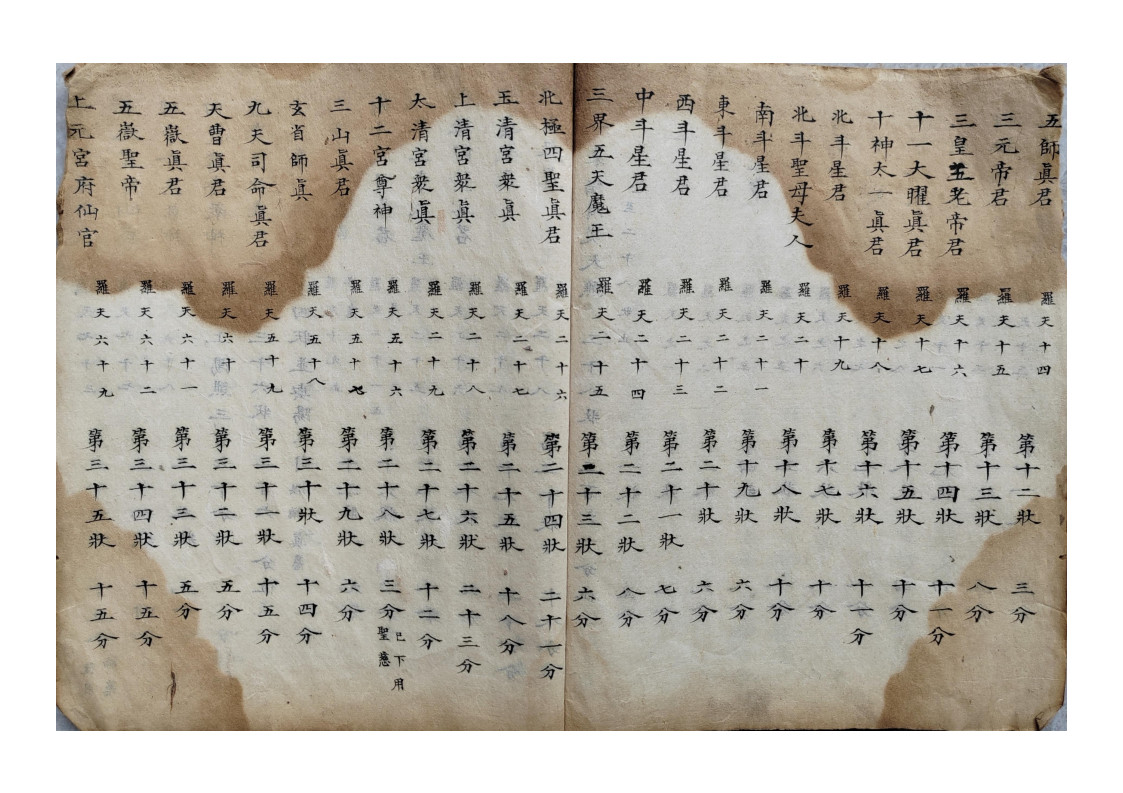 五師真君 羅天十四 第十二狀 三分
三元帝君 羅天十五 第十三狀 八分
三皇五老帝君 羅天十六 第十四狀 十一分
十一大曜真君 羅天十七 第十五狀 十分
十神太一真君 羅天十八 第十六狀 十一分
北斗星君 羅天十九 第十七狀 十分
北斗聖母夫人 羅天二十 第十八狀 十分
南斗星君 羅天二十一 第十九狀 六分
東斗星君 羅天二十二 第二十狀 六分
西斗星君 羅天二十三 第二十一狀 七分
中斗星君 羅天二十四 第二十二狀 八分
三界五天魔王 羅天二十五 第二十三狀 六分
北極四聖真君 羅天二十六 第二十四狀 二十一分
玉清宮衆真 羅天二十七 第二十五狀 十八分
上清宮衆真 羅天二十八 第二十六狀 二十三分
太清宮衆真 羅天二十九 第二十七狀 十二分
十二宮尊神 羅天五十六 第二十八狀 三分 已下用聖慈
三山真君 羅天五十七 第二十九狀 六分
玄省師真 羅天五十八 第三十狀 十四分
九天司命真君 羅天五十九 第三十一狀 十五分
天曹真君 羅天六十 第三十二狀 五分
五嶽真君 羅天六十一 第三十三狀 五分
五嶽聖帝 羅天六十二 第三十四狀 十五分
上元宮府仙官 羅天六十九 第三十五狀 十五分